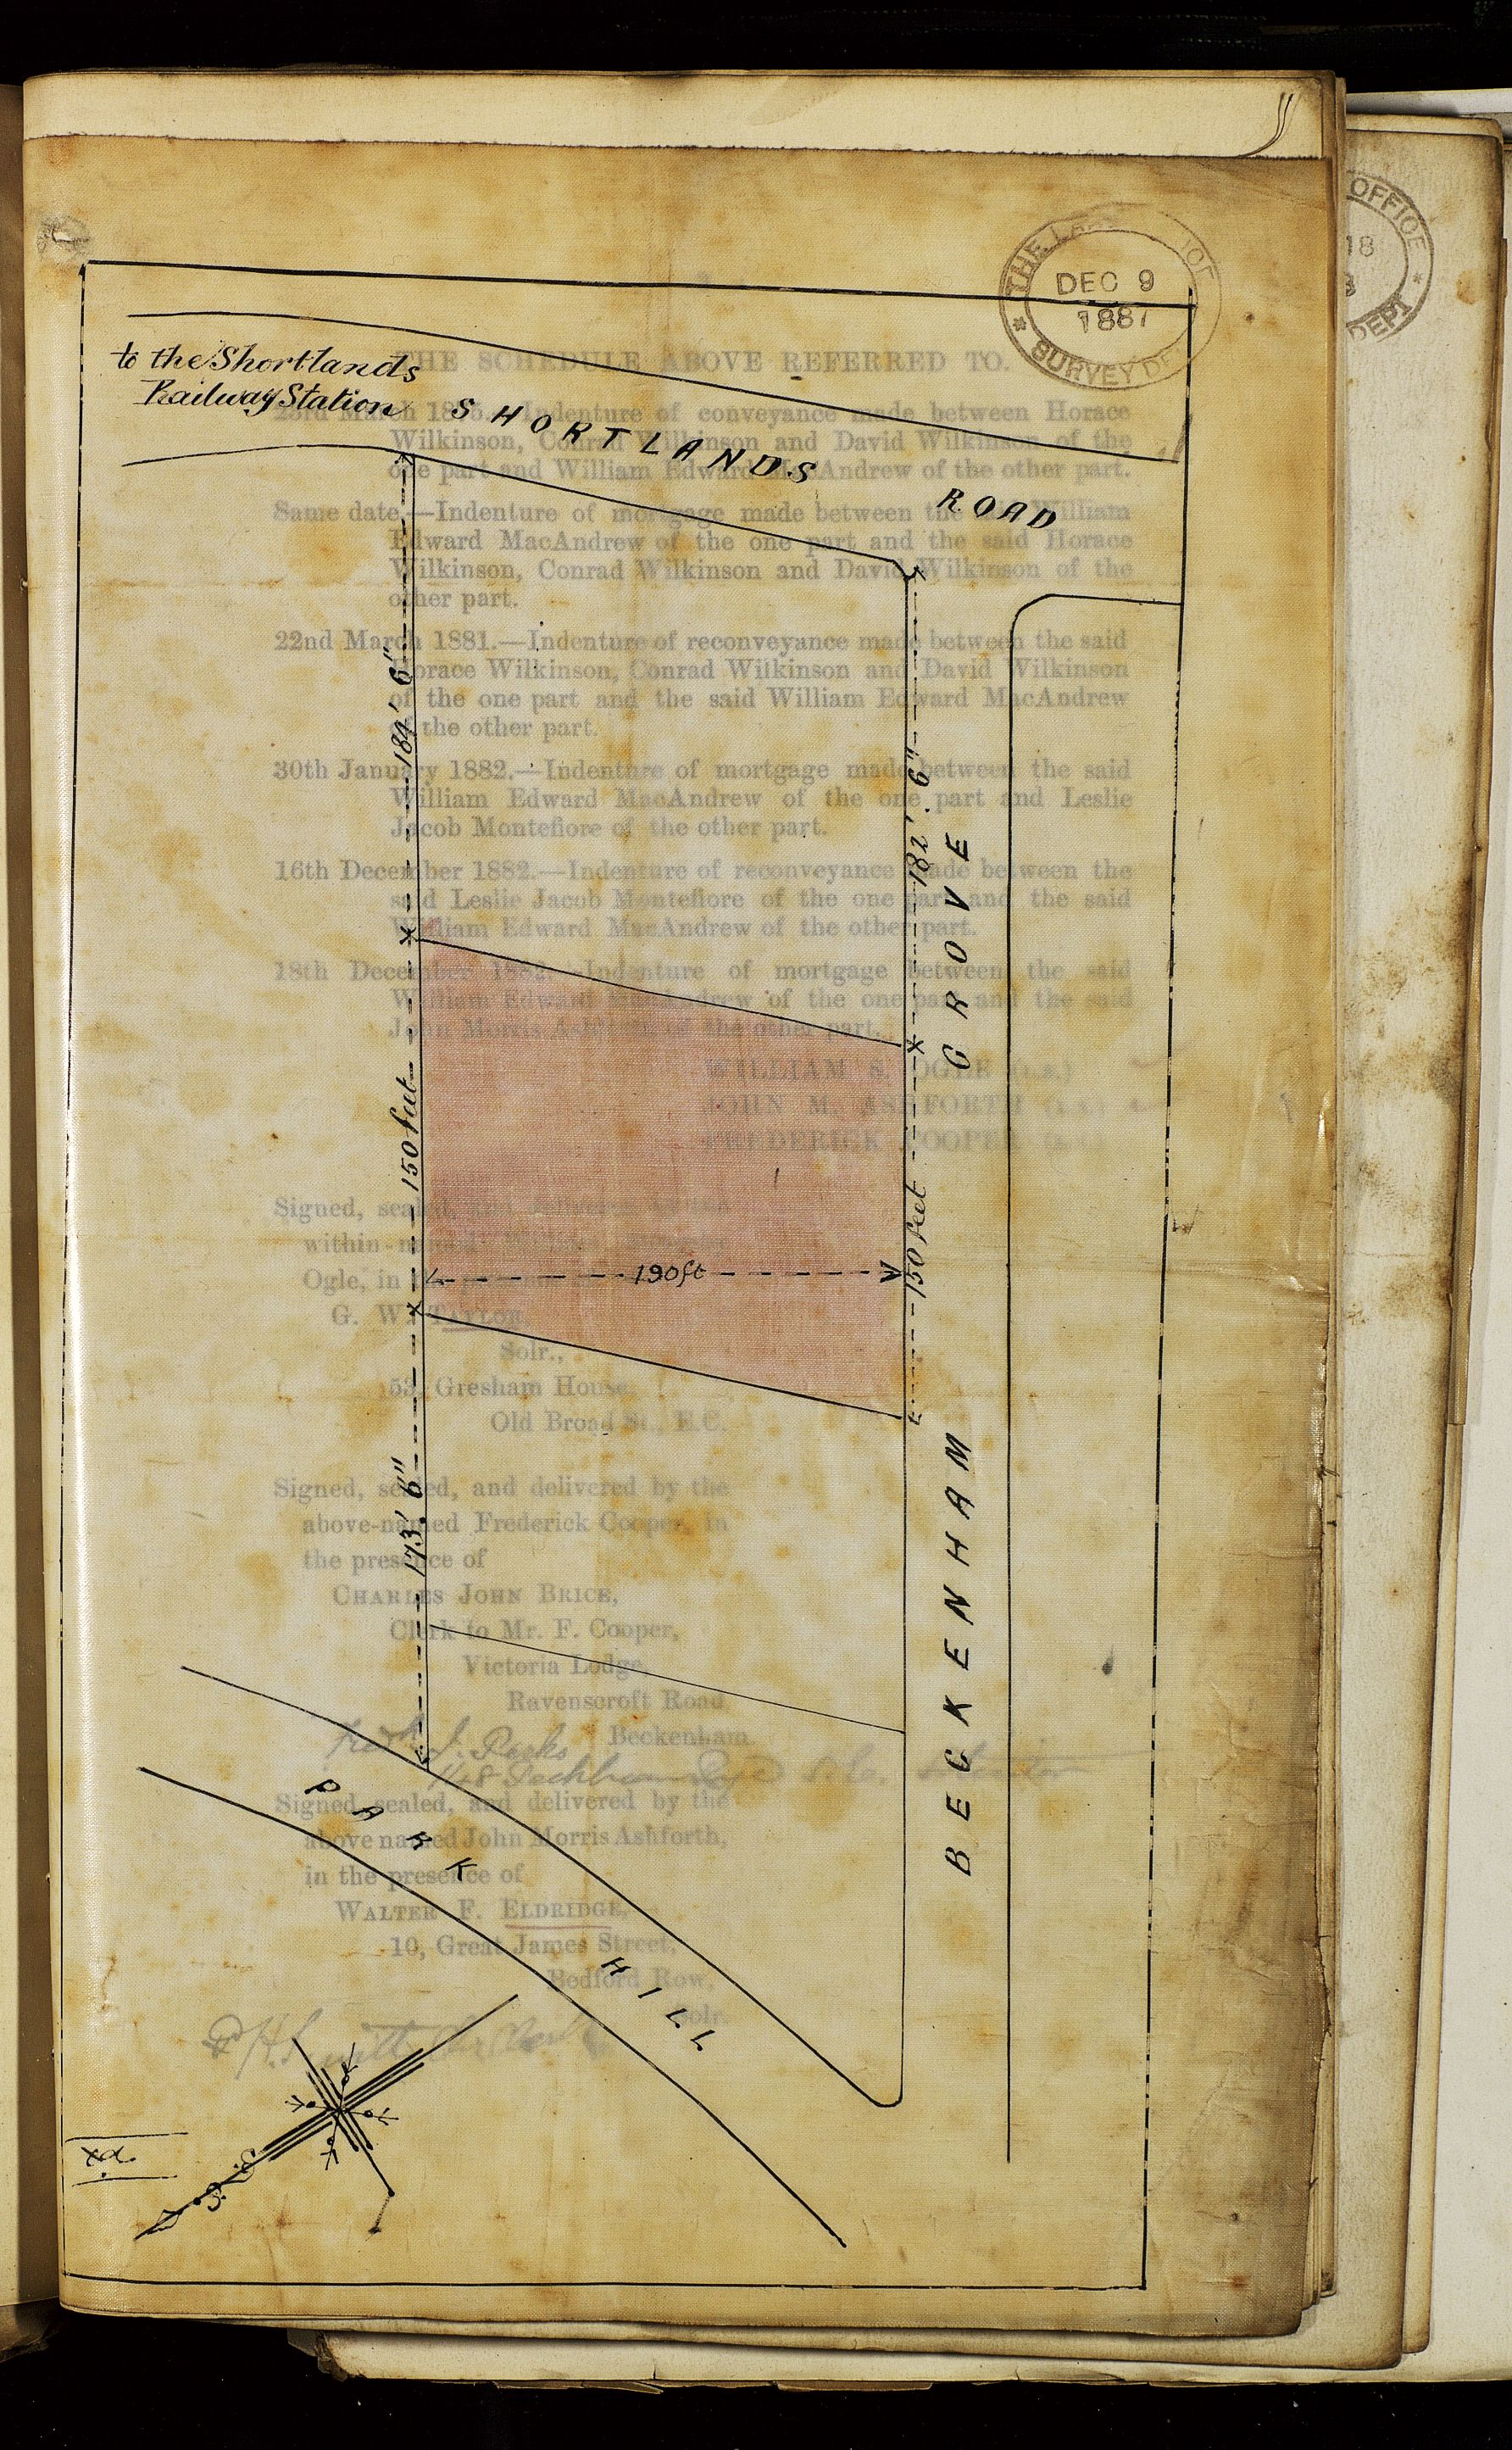 THE
DEC 9
1887
SURVEY DE
OFFICE
18
DEPT
to the Shortlands
Railway Station
SHORTLANDS
ROAD
184' 6"
182' 6"
150 feet
150 feet
190ft
173' 6"
BECKENHAM GROVE
PARK
HILL
THE SCHEDULE ABOVE REFERRED TO.
Indenture of conveyance made between Horace
Wilkinson, Conrad Wilkinson and David Wilkinson of the
one part and William Edward MacAndrew of the other part.
Same date.—Indenture of mortgage made between the said William
Edward MacAndrew of the one part and the said Horace
Wilkinson, Conrad Wilkinson and David Wilkinson of the
other part.
22nd March 1881.—Indenture of reconveyance made between the said
Horace Wilkinson, Conrad Wilkinson and David Wilkinson
of the one part and the said William Edward MacAndrew
of the other part.
30th January 1882.—Indenture of mortgage made between the said
William Edward MacAndrew of the one part and Leslie
Jacob Montefiore of the other part.
16th December 1882.—Indenture of reconveyance made between the
said Leslie Jacob Montefiore of the one part and the said
William Edward MacAndrew of the other part.
18th December 1882.—Indenture of mortgage between the said
William Edward MacAndrew of the one part and the said
John Morris Ashforth of the other part.
WILLIAM S. OGLE (L.S.)
JOHN M. ASHFORTH (L.S.)
FREDERICK COOPER (L.S.)
Signed, sealed, and delivered by the
within-named William
Ogle, in
G. W. TAYLOR,
Solr.,
53, Gresham House,
Old Broad St., E.C.
Signed, sealed, and delivered by the
above-named Frederick Cooper, in
the presence of
CHARLES JOHN BRICE,
Clerk to Mr. F. Cooper,
Victoria Lodge
Ravenscroft Road
Beckenham.
Signed, sealed, and delivered by the
above named John Morris Ashforth,
in the presence of
WALTER F. ELDRIDGE,
10, Great James Street,
Bedford Row,
Solr.